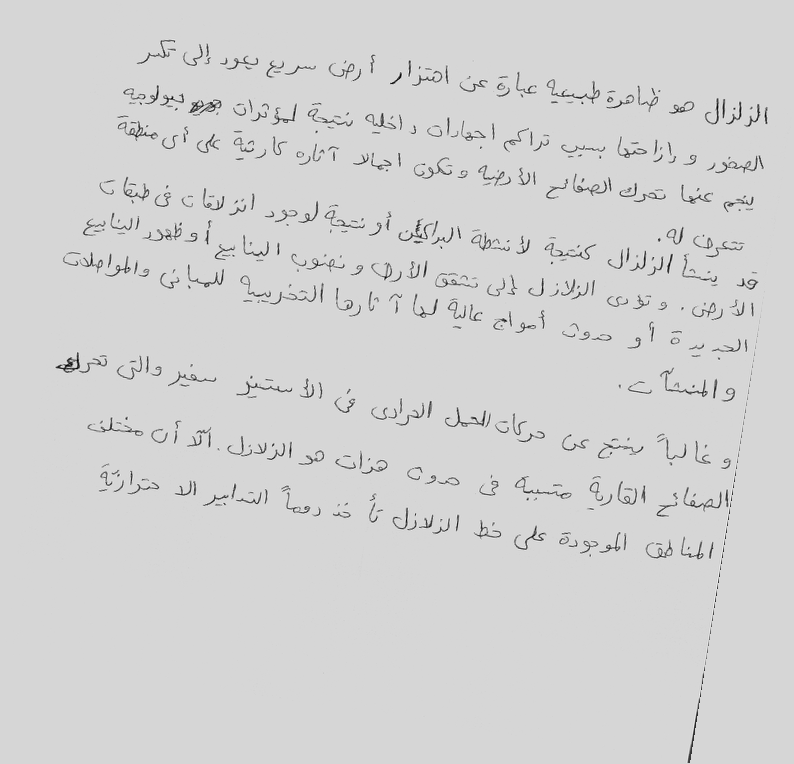 الزلزال هو ظاهرة طبيعيه عبارة عن اهتزار أرض سريع يعود إلى تكسر
الصخور و إزاحتها بسبب تراكم اجهادات داخليه نتيجة لمؤثرات جيولوجيه
ينجم عنها تحرك الصفائح الأرضيه وتكون اجمالا آثاره كارثية على أى منطقة
تتعرض له.
قد ينشأ الزلزال كنتيجة لأنشطة البراكين أو نتيجة لوجود انزلاقات فى طبقات
الأرض. و تؤدى الزلازل إلى تشقق الأرض و نضوب الينابيع أو ظهور الينابيع
الجديدة أو حدوث أمواج عالية لها آثارها التخريبية للمبانى والمواصلات
و المنشآت.
و غالباً ينتج عن حركات الحمل الحرارى فى الأستينو سفير والتى تحرك
الصفائح القارية متسببة فى حدوث هزات هو الزلازل. ألّا أن مختلف
المناطق الموجودة على خط الزلازل تأخذ دوماً التدابير الاحترازيّة